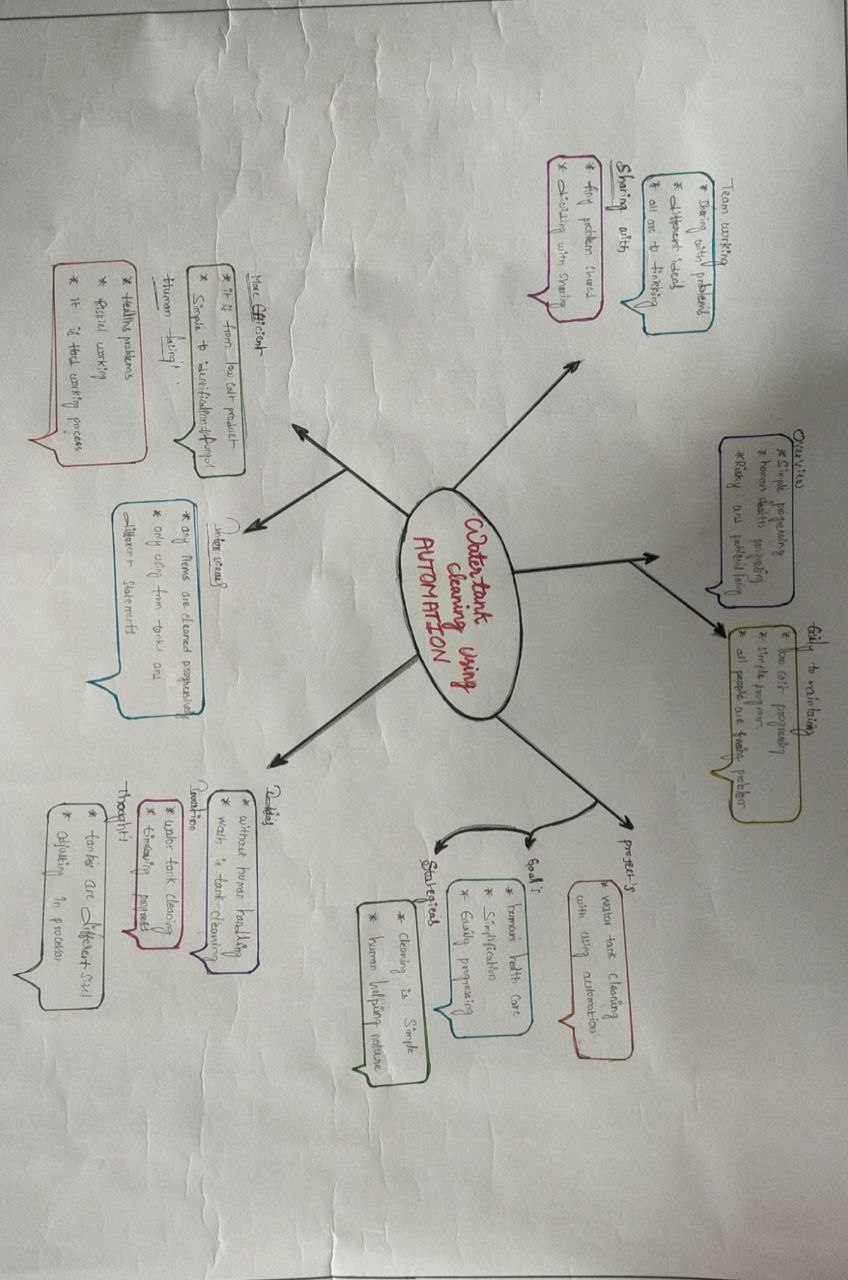 Overview
* Simple progressing
* human Health progresing
* Risky and problems facing
Easily to maintaing
* low cost progressing
* simple program
* all people are facing problem
Team working
* Sharing with problems
* different ideas
* all are to finishing
Sharing with
* Any problem shared
* dividing with sharing
project's
* water tank cleaning
with using automation
Goal's
* human's helth care
* Simplification
* Easily progressing
Stategieas
* Cleaning is Simple
* human helping nature
Water tank
cleaning Using
AUTOMATION
More Efficient
* it is from low cost product
* Simple to identification
Human facing!
* Healths problems
* Riskiel working
* it is Hard working process
Inter views
* any items are cleaned progressively
* only using from tanks and
different statements
* without human handling
* wash in tank cleaning
* water tank cleaning
* progress
Thought's
* tankes are different sizes
* adjusting in processor